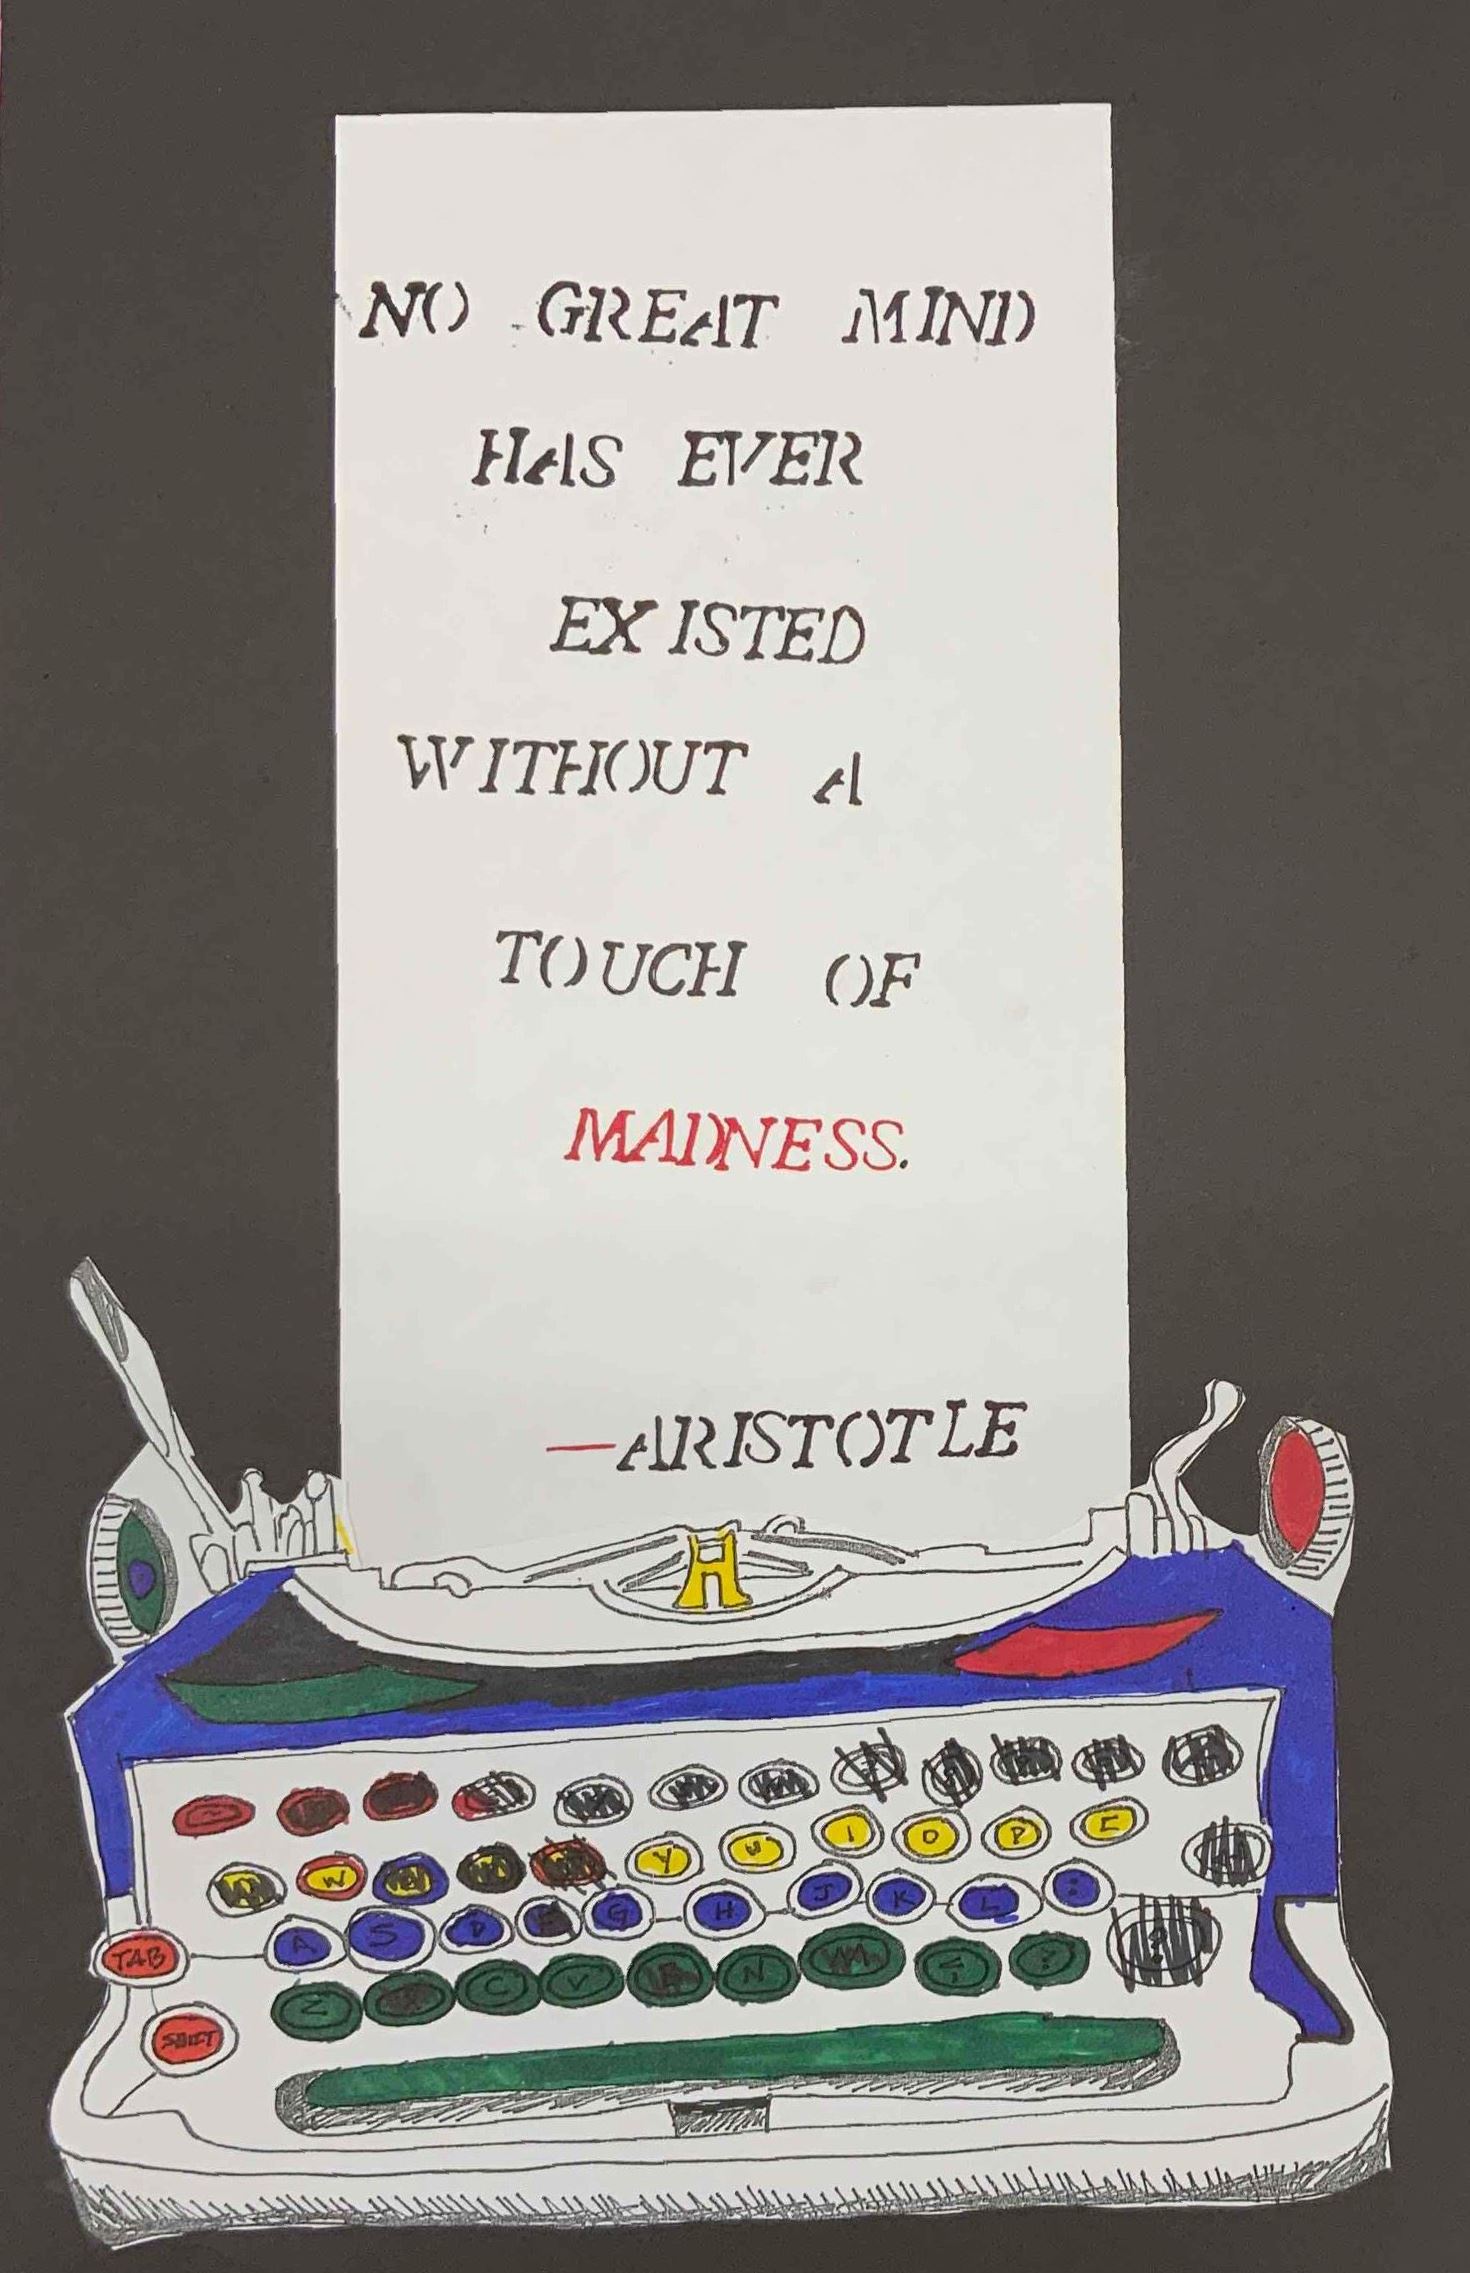 NO GREAT MIND
HAS EVER
EXISTED
WITHOUT A
TOUCH OF
MADNESS.
—ARISTOTLE
H
W Y U I O P
TAB A S D F G H J K L :
SHIFT Z C V B N < , ?